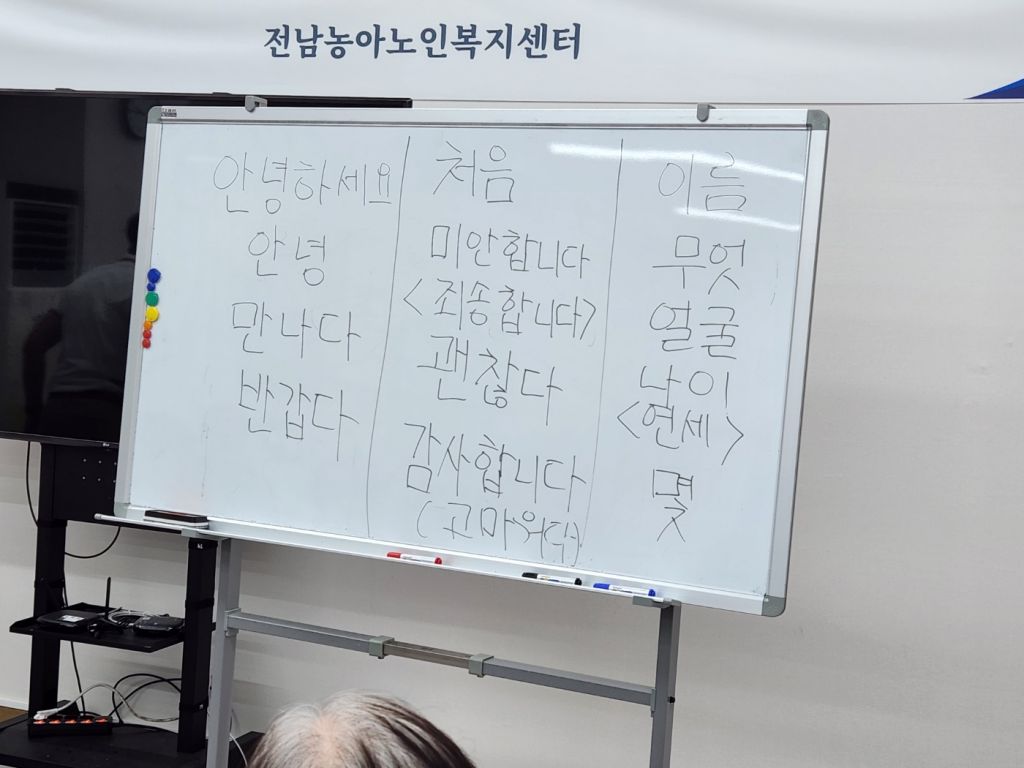 전남농아노인복지센터
안녕하세요
안녕
만나다
반갑다
처음
미안합니다
<죄송합니다>
괜찮다
감사합니다
(고마워요)
이름
무엇
얼굴
나이
<연세>
몇